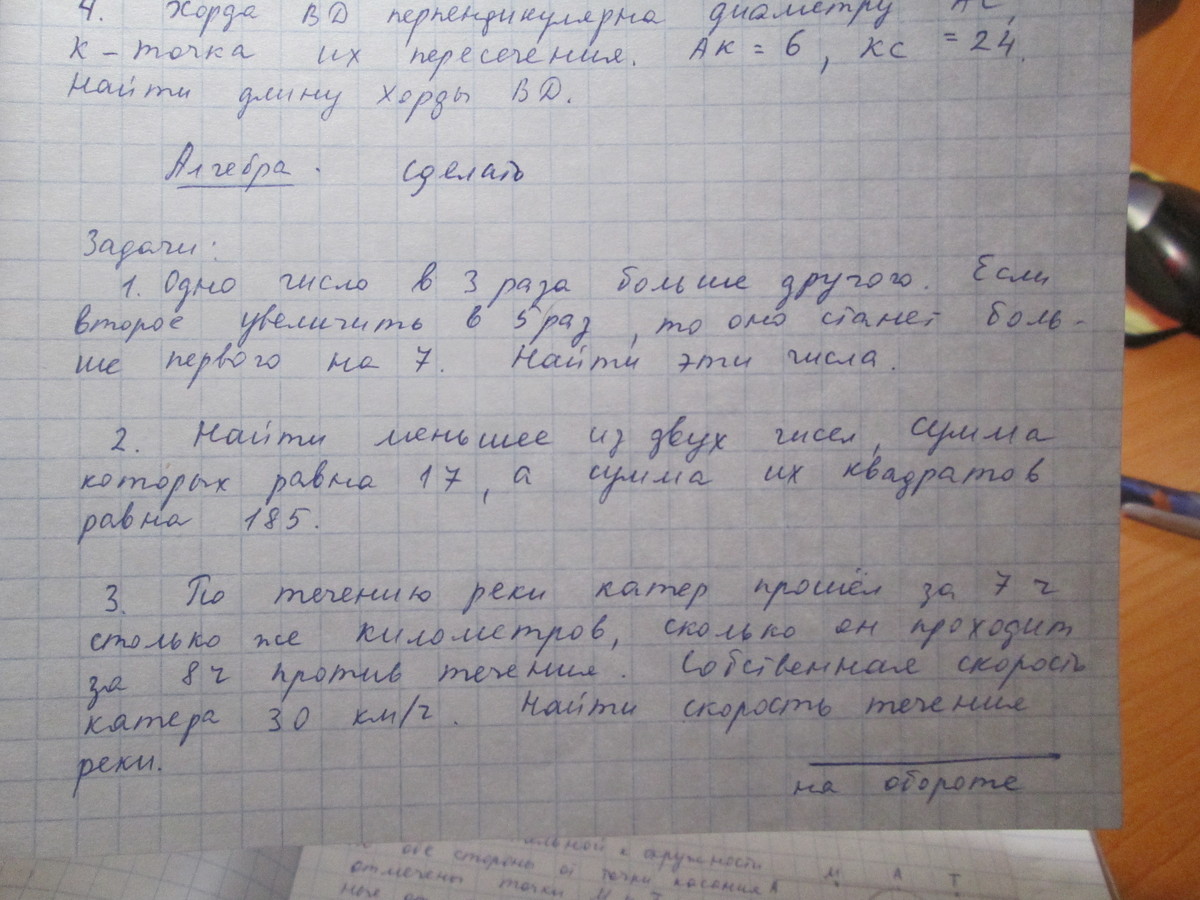 4. Хорда BD перпендикулярна диаметру AC,
K - точка их пересечения. AK = 6, KC = 24.
Найти длину хорды BD.
Алгебра. сделать
Задачи:
1. Одно число в 3 раза больше другого. Если
второе увеличить в 5 раз, то оно станет боль-
ше первого на 7. Найти эти числа.
2. Найти меньшее из двух чисел, сумма
которых равна 17, а сумма их квадратов
равна 185.
3. По течению реки катер прошёл за 7 ч
столько же километров, сколько он проходит
за 8 ч против течения. Собственная скорость
катера 30 км/ч. Найти скорость течения
реки.
на обороте
окружности
обе стороны от точки касания A
отмечены точки M и T
M A T